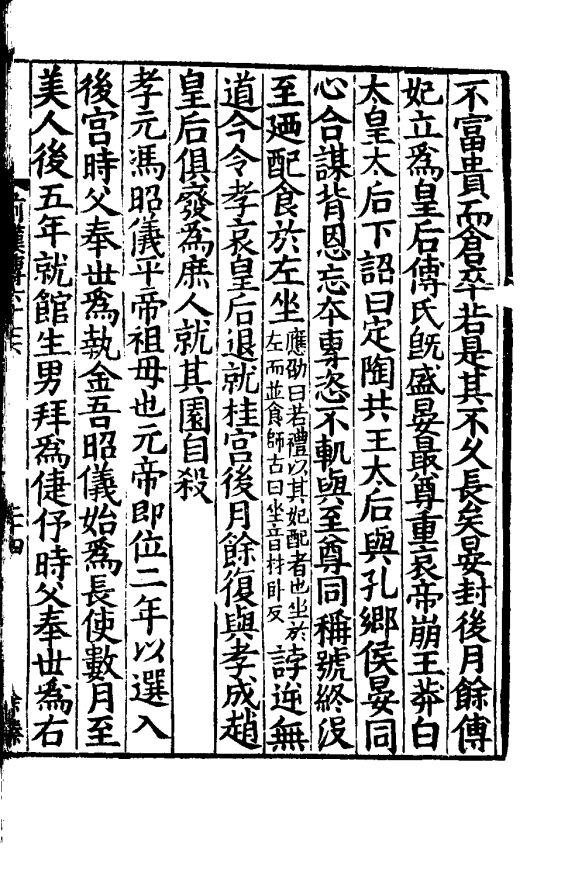 不富貴而倉卒若是其不久長矣晏封後月餘傅
妃立爲皇后傅氏旣盛晏最尊重哀帝崩王莽白
太皇太后下詔曰定陶共王太后與孔鄉侯晏同
心合謀背恩忘夲專恣不軌與至尊同稱號終没
至廼配食於左坐應劭曰若禮以其妃配者也坐於左而並食師古曰坐音材卧反誖逆無
道今令孝哀皇后退就桂宫後月餘復與孝成趙
皇后俱廢爲庶人就其園自殺
孝元馮昭儀平帝祖母也元帝即位二年以選入
後宫時父奉世爲執金吾昭儀始爲長使數月至
美人後五年就館生男拜爲倢伃時父奉世爲右
前漢傳六十七
二十四